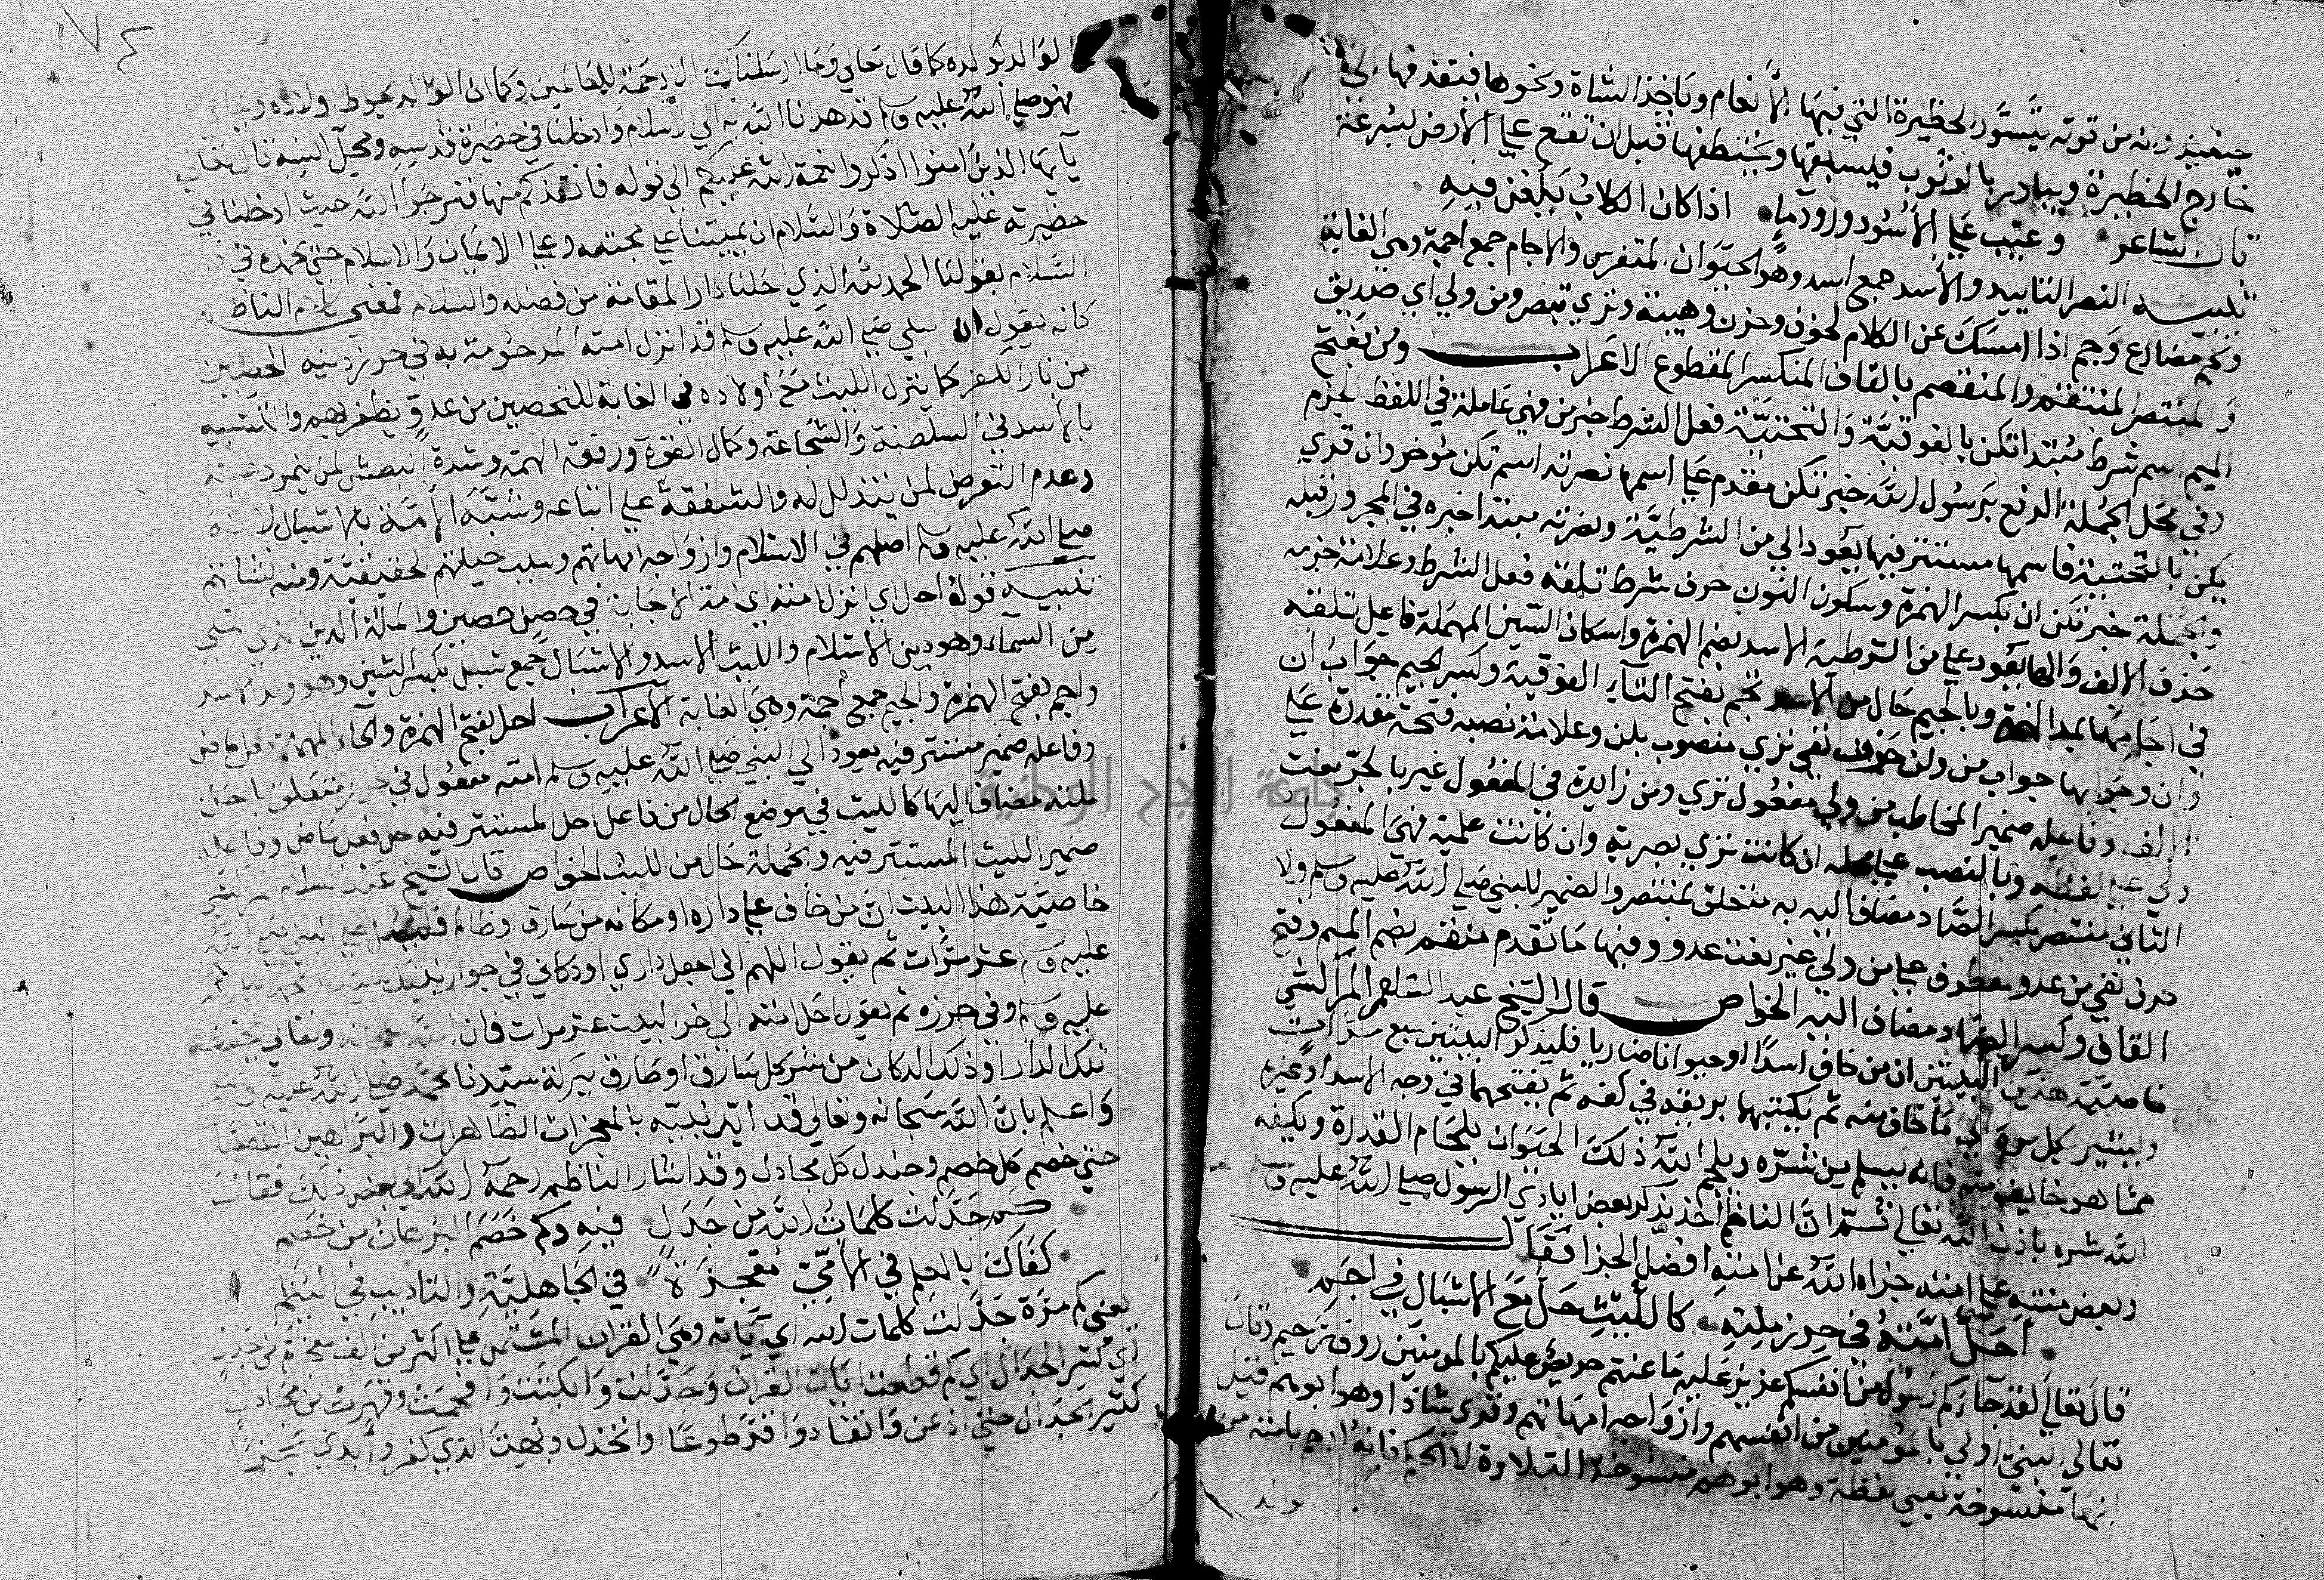 ومن قوته يتسور الحظيرة التي فيها الأنعام وياخذ الشاة ونحوها فيقذفها الي
خارج الحظيرة ويبادر بالوثوب فيسبقها ويتلقفها قبل ان تقع علي الأرض لسرعته
قال الشاعر وعتب علي الأسود ورودها اذا كان الكلاب يلغن فيه
تنبيه النصر التاييد والأسد جمع اسد وهو الحيوان المتفرس والاجام جمع اجمة وهي الغابة
وتجم مضارع وجم اذا امسك عن الكلام لخوف وحزن وهيبة وتري تبصر ومن ولي اي صديق
والمنتصر المنتقم والمنقصم بالقاف المنكسر المقطوع الاعراب ومن بفتح
الميم اسم شرط مبتدا تكن بالفوقية والتحتية فعل الشرط خبر من فهي عاملة في اللفظ الجزم
وفي محل الجملة الرفع برسول الله خبر تكن مقدم علي اسمها نصرته اسم تكن مؤخر وان قري
يكن بالتحتية فاسمها مستتر فيها يعود الي من الشرطية ونصرته مبتدا خبره في المجرور قبله
والجملة خبر تكن ان بكسر الهمزة وسكون النون حرف شرط تلقه فعل الشرط وعلامة جزمه
حذف الالف والها يعود علي من الشرطية الاسد بضم الهمزة واسكان السين المهملة فاعل تلقه
في اجامها بمد الهمزة وبالجيم حال من الاسد تجم بفتح التاء الفوقية وكسر الجيم جواب ان
وان وجوابها جواب من ولن حرف نفي تري منصوب بلن وعلامة نصبه فتحة مقدرة علي
الالف وفاعله ضمير المخاطب من ولي مفعول تري ومن زايدة في المفعول غير بالجر نعت
ولي علي لفظه وبالنصب علي محله ان كانت تري بصرية وان كانت علمية فهي المفعول
الثاني منتصر بكسر الصاد مضاف اليه به متعلق بمنتصر والضمير للنبي صلي الله عليه وسلم ولا
حرف نفي من عدو معطوف علي من ولي غير نعت عدو وفيها ما تقدم منقصم بضم الميم وفتح
القاف وكسر الصاد مضاف اليه الخواص قال الشيخ عبد السلام المراكشي
خاصية هذين البيتين ان من خاف اسدا او حيوانا ضاريا فليذكر البيتين سبع مرات
ويشير بكل مرة الي ما خاف منه ثم يكتبهما بريقه في كفه ثم يفتحهما في وجه الاسد او غيره
مما هو خايف منه فانه يسلم من شره ويلجم الله ذلك الحيوان بلجام القدرة ويكفيه
الله شره باذن الله تعالي ثم ان الناظم اخذ يذكر بعض ايادي الرسول صلي الله عليه وسلم
وبعض مننه علي امته جزاه الله عنا منه افضل الجزا فقال
احل امته في حرز ملته كالليث حل مع الاشبال في اجم
قال تعالي لقد جاءكم رسول من انفسكم عزيز عليه ما عنتم حريص عليكم بالمومنين رؤف رحيم وقال
تعالي النبي اولي بالمؤمنين من انفسهم وازواجه امهاتهم وقري شاذا وهو ابوهم قيل
انها منسوخة يعني لفظة وهو ابوهم منسوخة التلاوة لا الحكم فانه ارحم بامته من
الوالد بولده كما قال تعالي وما ارسلناك الا رحمة للعالمين وكما ان الوالد يحوط اولاده
فهو صلي الله عليه وسلم قد هدانا الله به الي الاسلام وادخلنا في حضيرة قدسه ومحل انسه قال تعالي
يا يها الذين امنوا اذكروا نعمة الله عليكم الي قوله فانقذكم منها فنرجوا الله حيث ادخلنا في
حضيرته عليه الصلاة والسلام ان يميتنا علي محبته وعلي الايمان والاسلام حتي نحمده في دار
السلام بقولنا الحمد لله الذي احلنا دار المقامة من فضله والسلام فمعني كلام الناظم
كانه يقول ان النبي صلي الله عليه وسلم قد انزل امته المرحومة به في حرز دينه الحصين
من نار الكفر كما ينزل الليث مع اولاده في الغابة للتحصين من عدو يظفر بهم والتشبيه
بالأسد في السلطنة والشجاعة وكمال القوة ورفقة الهمة وشدة البطش لمن يتمرد عليه
وعدم التعرض لمن يتذلل له والشفقة علي اتباعه وشبه الأمة بالاشبال لانه
صلي الله عليه وسلم اصلهم في الاسلام وازواجه امهاتهم وسبب حياتهم الحقيقية ومنه نشاتهم
تنبيه قوله احل اي انزل امته اي امة الاجابة في حصن حصين والملة الدين
من السماء وهو دين الاسلام والليث الاسد والاشبال جمع شبل بكسر الشين وهو ولد الاسد
واجم بفتح الهمزة والجيم جمع اجمة وهي الغابة الاعراب احل بفتح الهمزة والحاء المهملة فعل ماض
وفاعله ضمير مستتر فيه يعود الي النبي صلي الله عليه وسلم امته مفعول في حرز متعلق باحل
ملته مضاف اليها كالليث في موضع الحال من فاعل احل المستتر فيه حل فعل ماض وفاعله
ضمير الليث المستتر فيه والجملة حال من الليث الخواص قال الشيخ عبد السلام المراكشي
خاصية هذا البيت ان من خاف علي داره او مكانه من سارق وظالم فليصل علي النبي صلي الله
عليه وسلم عشر مرات ثم يقول اللهم اني اجعل داري او دكاني في جوار سيدنا محمد صلي الله
عليه وسلم وفي حرزه ثم يقول احل امته الي اخر البيت عشر مرات فان الله سبحانه وتعالي يحفظ
تلك الدار او ذلك الدكان من شر كل سارق او طارق ببركة سيدنا محمد صلي الله عليه وسلم
واعلم بان الله سبحانه وتعالي قد ايد نبيه بالمعجزات الظاهرات والبراهين القطعيات
حتي خصم كل خصم وجندل كل مجادل وقد اشار الناظم رحمه الله الي بعض ذلك فقال
كم جدلت كلمات الله من جدل فيه وكم خصم البرهان من خصم
كفاك بالعلم في الأمي معجزة في الجاهلية والتاديب في اليتم
يعني كم مرة جدلت كلمات الله اي آياته وهي القران المشتمل علي اكثر من الف معجزة من جدل
اي كثير الجدال اي كم قطعت ايات القران وجدلت وابكتت وافحمت وقهرت من مجادل
كثير الجدال حتي اذعن وانقاد وافترطوعا وانخذل وبهت الذي كفر وأبدي عجزا